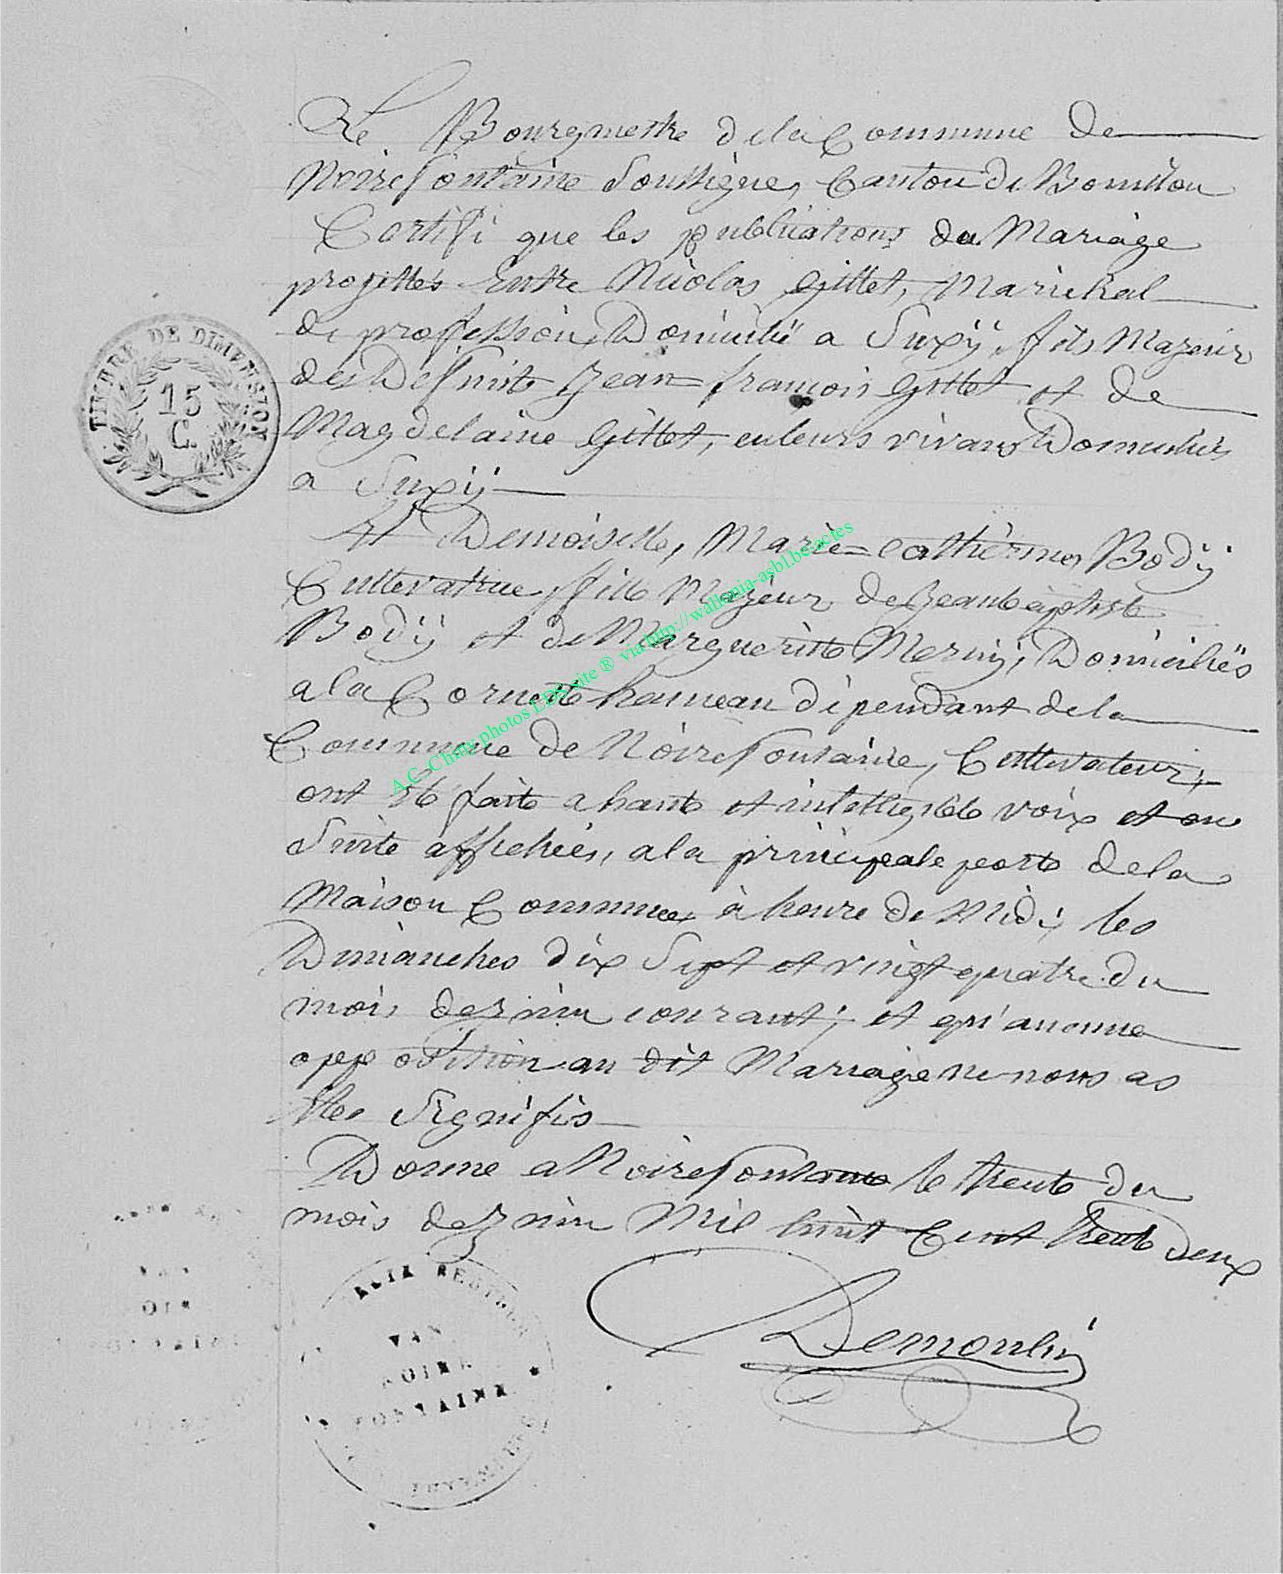 Le Bourgmestre dela Commune de
Noirefontaine Soussigné, Canton de Bouillon
Certifi que les publications du Mariage
projettés Entre Nicolas Gillet, Marichal
de profession, Domicilié a Suxÿ, fils Majeur
des Defunts Jean francois Gillet et de
Magdelaine Gillet, euleurs vivans Domicilies
a Suxÿ
Et Demoiselle, Marie=catherine, Bodÿ
Cultevatrice, fille Majeur de Jeanbaptiste
Bodÿ et de Margueritte Merny, Domiciliés
a la Cornette hameau dipendant dela
Commune de Noirefontaine, Cultivateur,
ont été faite a haute et intelligible voix et en
Suite affichées, ala principale porte dela
Maison Commune, à heure de Midi, les
Dimanches dix Sept et vingt quatre du
mois dejuin courant; et qu'aucune
opposition au dit Mariage ne nous as
étée Signifis
Donne a Noirefontaine le trente du
mois dejuin Mil huit Cent trente Deux
Demoulin
TIMBRE DE DIMENSION
15
C.
VAN
NOIRE
FONTAINE
A.C. Chiny photos LDS site ® via http://wallonia-asbl.be/actes